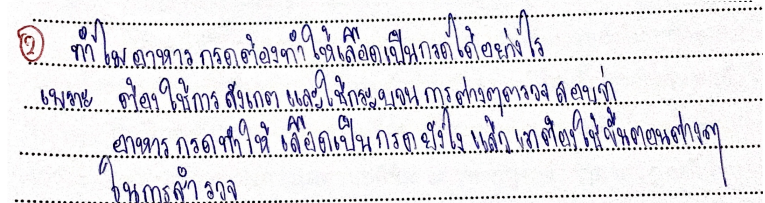 ② ทำไมอาหารกรดต้องทำให้เลือดเป็นกรดได้อย่างไร
เพราะ ต้องใช้การสังเกต และใช้กระบวนการต่างๆตรวจสอบว่า
อาหารกรดทำให้ เลือดเป็นกรดยังไง แล้วเขาต้องใช้ขั้นตอนต่างๆ
ในการสำรวจ